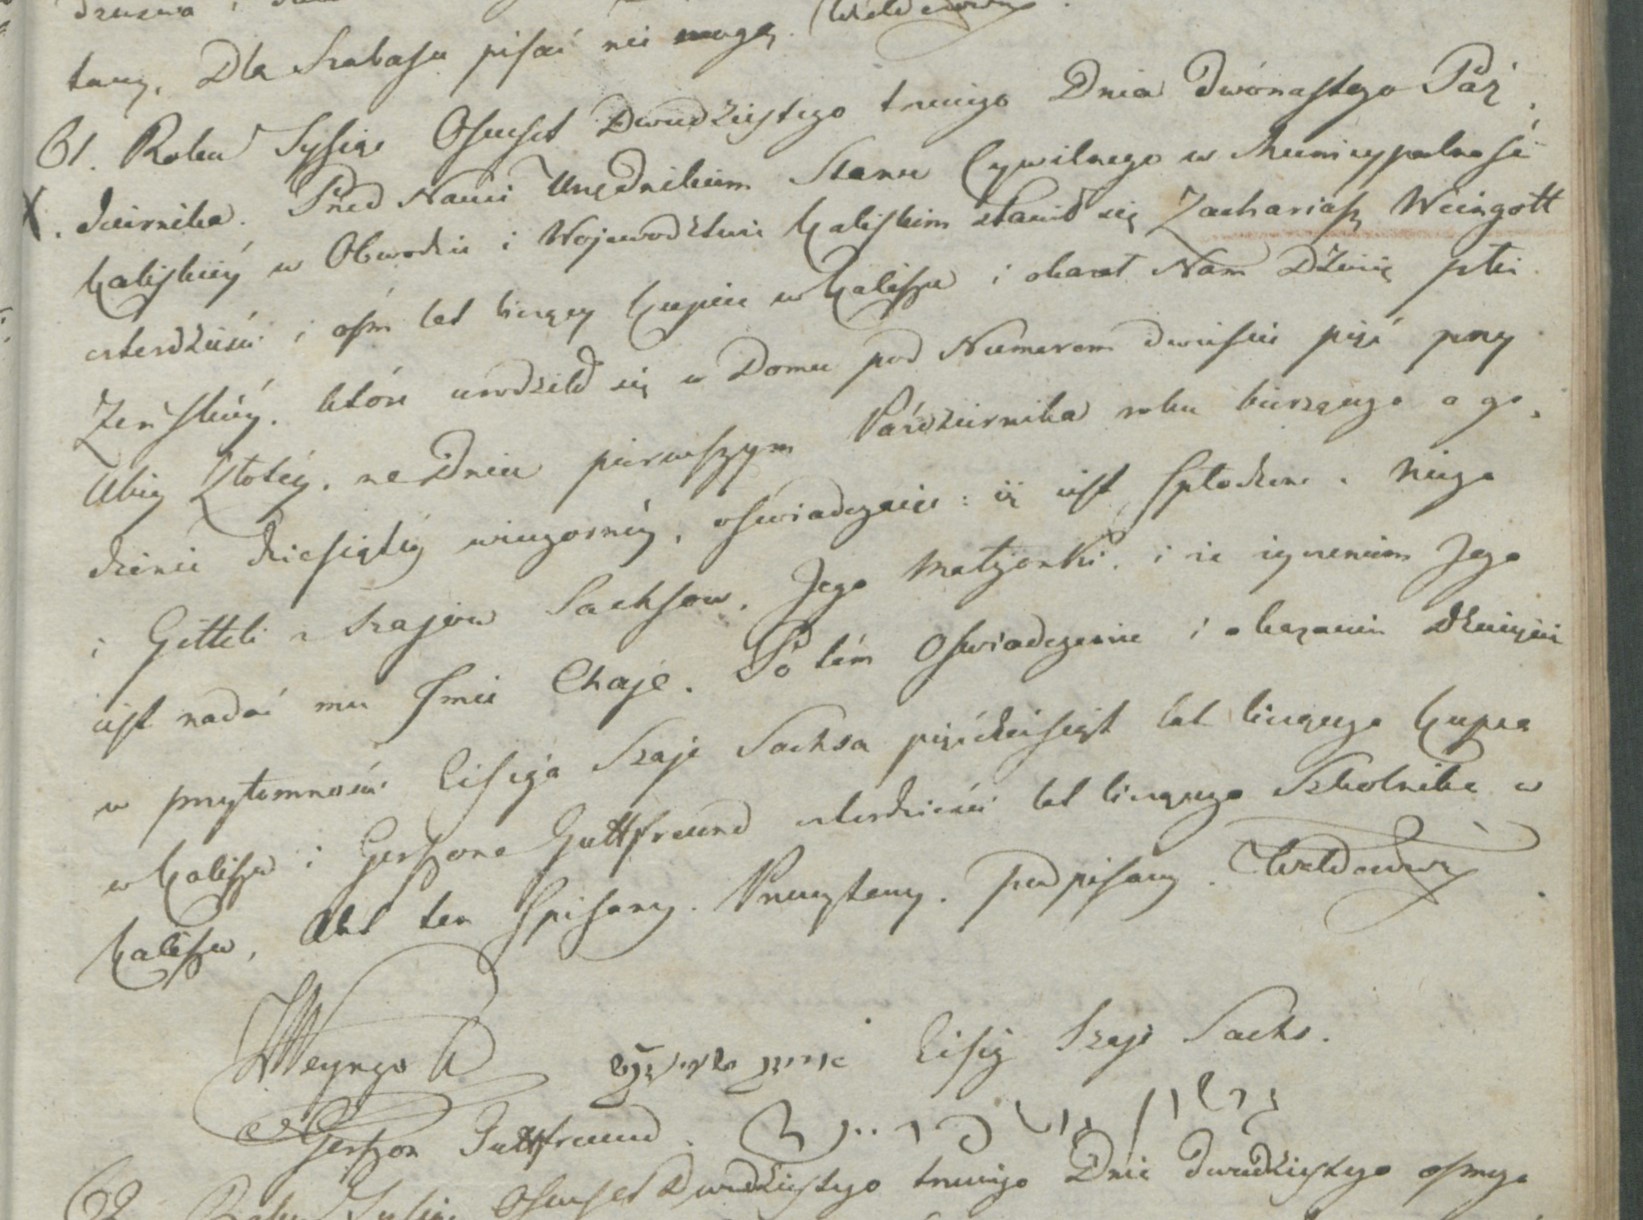 tany, Dla Szabasu pisać nie mogą.
61. Roku Tysiąc Osmset Dwudziestego trzeciego Dnia Dwónastego Paź
X. dziernika. Przed Nami Urzędnikiem Stanu Cywilnego w Municypalności
Kaliskiéy w Obwodzie i Województwie Kaliskim stawił się Zachariasz Weingott
czterdzieści i ośm lat liczący Kupiec w Kaliszu i okazał Nam Dziecię płci
Żeńskiéy. które urodziło się w Domu pod Numerem dwieście pięć przy
Ulicy Złotéy. na Dniu pierwszym Października roku bieżącego o go
dzinie dziesiątéy wieczornéy, oswiadczaiąc: iż iest spłodzone z Niego
i Gitteli z Szajów Sachsow. Jego Małżonki. i że życzeniem Jego
iest nadać mu Imie Chaje. Po tém Oswiadczeniu i okazaniu Dziecięcia
w przytomności Eisiga Szaje Sachsa pięćdziesiąt lat liczącego Kupca
w Kaliszu i Gerszona Guttfreund czterdzieści lat liczącego Szkolnika w
Kaliszu, Akt ten Spisany. Przeczytany. podpisany.
Eisig Szaje Sachs.
Gerszon Guttfreund.
62. Roku Tysiąc Osmset Dwudziestego trzeciego Dnia dwudziestego osmego